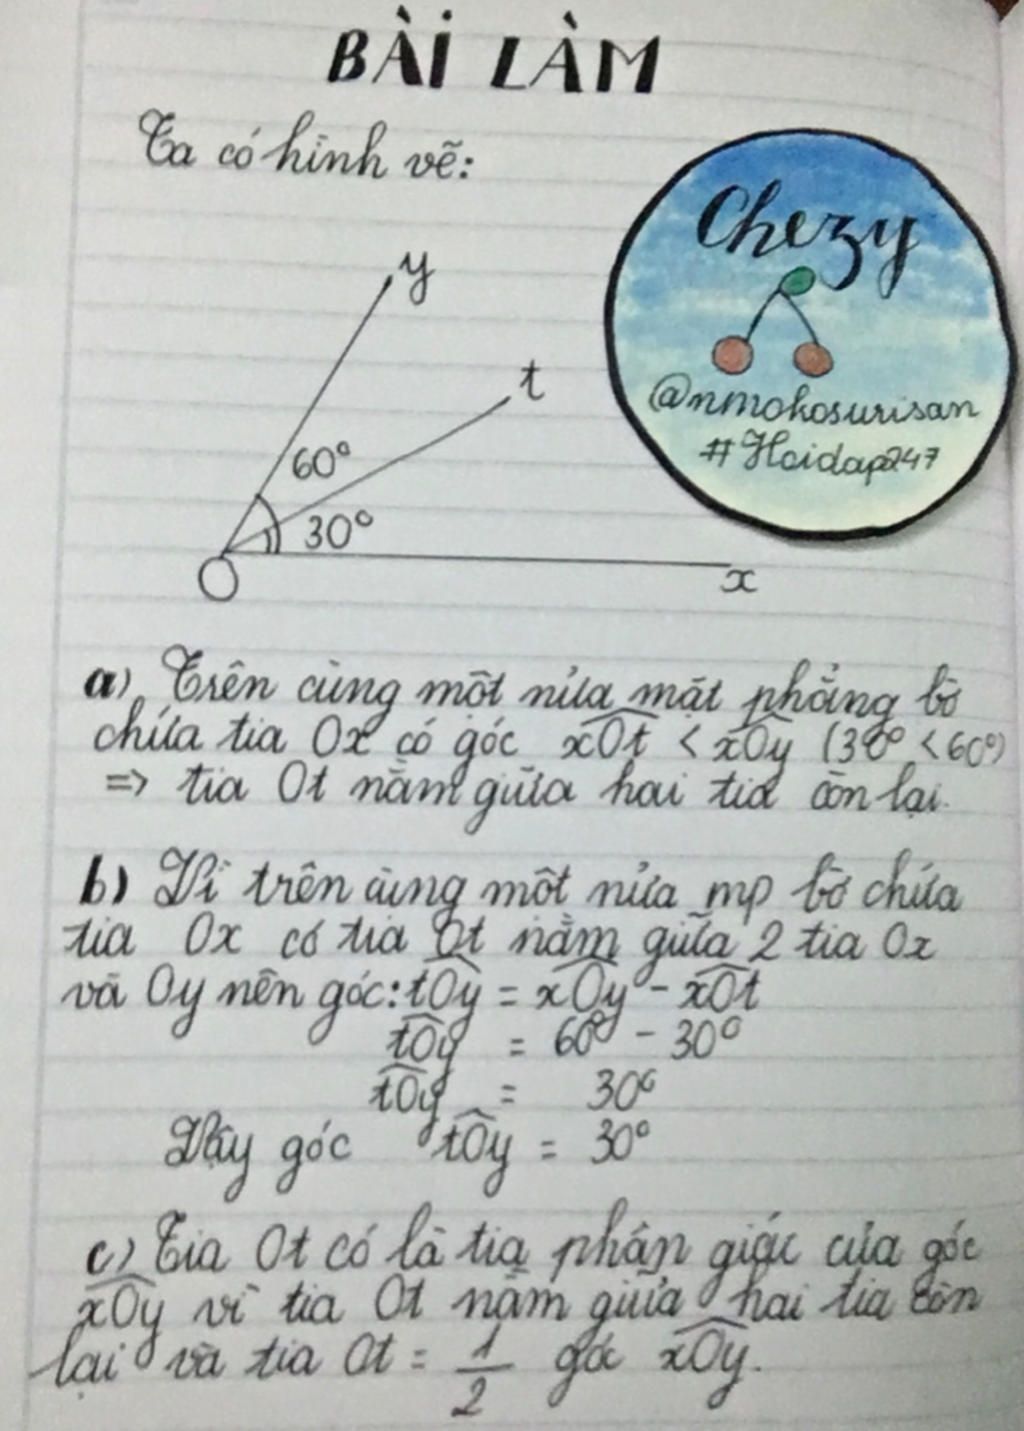 BÀI LÀM
Ta có hình vẽ:
Chezy
@nmokosurisan
#Hoidap247
y
t
60°
30°
O
x
a) Trên cùng một nửa mặt phẳng bờ
chứa tia Ox có góc xOt < xOy (30° < 60°)
=> tia Ot nằm giữa hai tia còn lại.
b) Vì trên cùng một nửa mp bờ chứa
tia Ox có tia Ot nằm giữa 2 tia Ox
và Oy nên góc: tOy = xOy - xOt
tOy = 60° - 30°
tOy = 30°
Vậy góc tOy = 30°
c) Tia Ot có là tia phân giác của góc
xOy vì tia Ot nằm giữa hai tia còn
lại và tia Ot = 1/2 góc xOy.